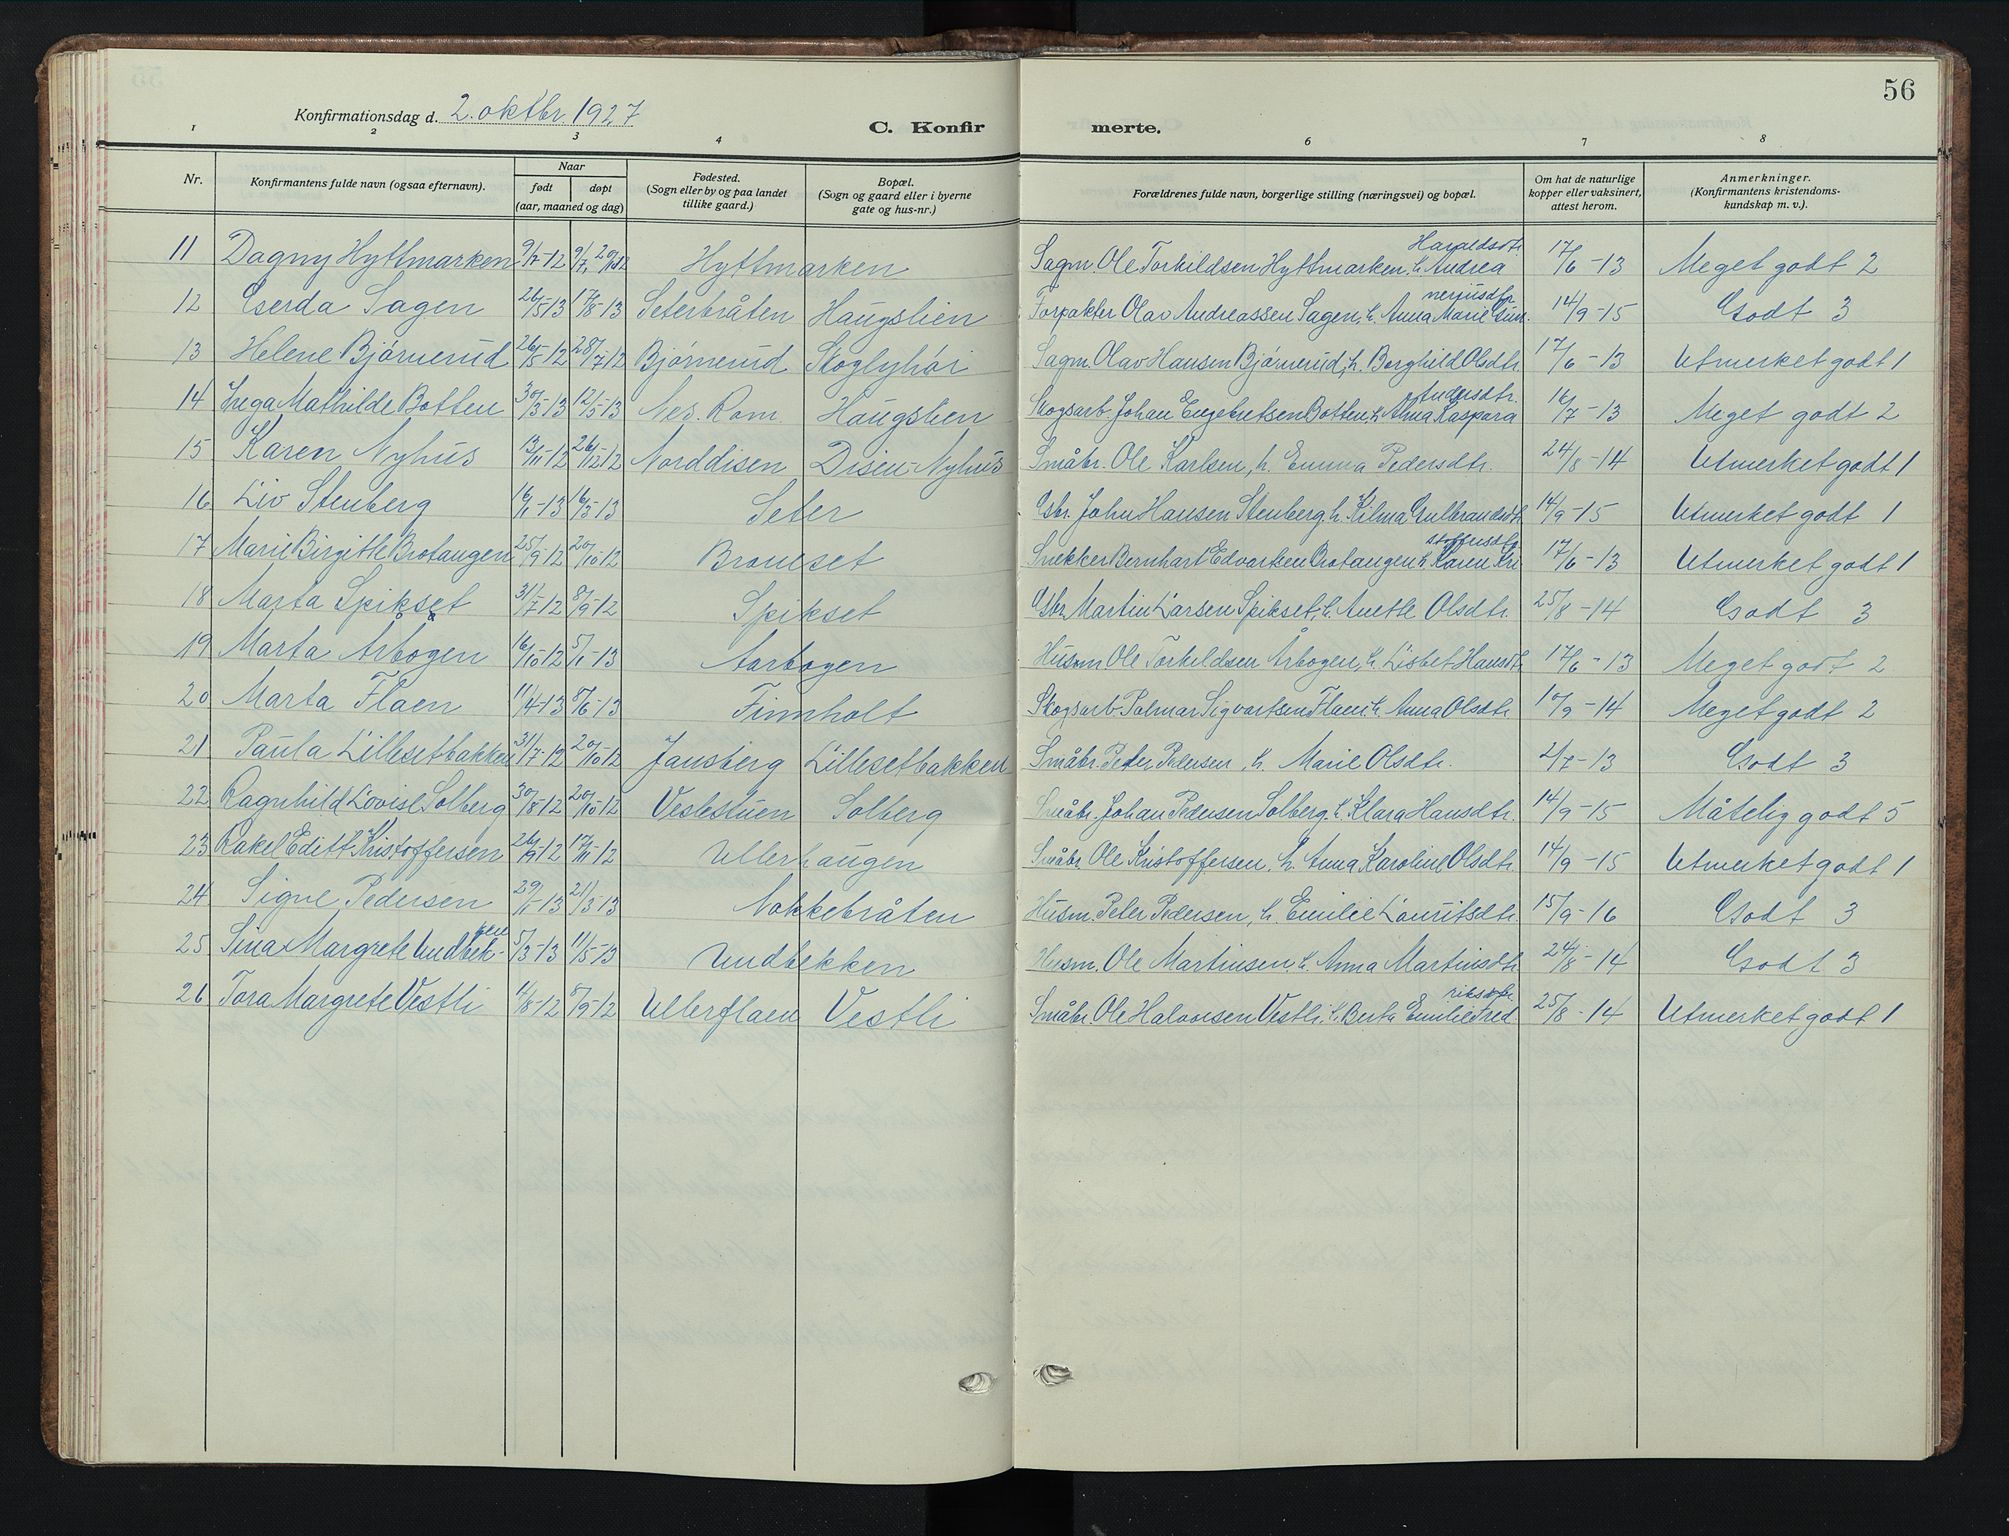 56
Konfirmationsdag d. 2. oktbr. 1927
C. Konfirmerte.
1 2 3 4 6 7 8
Nr. Konfirmantens fulde navn (ogsaa efternavn). Naar født døpt (aar, maaned og dag) Fødested. (Sogn eller by og paa landet tillike gaard.) Bopæl. (Sogn og gaard eller i byerne gate og hus-nr.) Forældrenes fulde navn, borgerlige stilling (næringsvei) og bopæl. Om hat de naturlige kopper eller vaksinert, attest herom. Anmerkninger. (Konfirmantens kristendomskundskap m. v.).
11 Dagny Hyttmarken 9/7-12 Hyttmarken Sagm. Ole Torkildsen Hyttmarken, h. Andrea Haraldsdtr. 17/6-13 Meget godt 2
12 Gerda Sagen 26/5-13 17/8-13 Seterbråten Haugslien Forpakter Olav Andreassen Sagen, h. Anna Marie Gunneriusdtr. 14/9-15 Godt 3
13 Helene Bjørnerud 26/5-12 28/7-12 Bjørnerud Skoglyhøi Sagm. Olav Hansen Bjørnerud, h. Borghild Olsdtr. 17/6-13 Utmerket godt 1
14 Inga Mathilde Botten 30/3-13 12/5-13 Nes. Rom. Haugslien Skogsarb. Johan Engebretsen Botten, h. Anna Kaspara Andersdtr. 16/7-13 Meget godt 2
15 Karen Nyhus 13/11-12 26/12-12 Norddisen Disen-Nyhus Småbr. Ole Karlsen, h. Emma Pedersdtr. 24/8-14 Utmerket godt 1
16 Liv Stenberg 16/1-13 16/3-13 Seter Gbr. John Hansen Stenberg, h. Kilma Gulbrandsdtr. 14/9-15 Utmerket godt 1
17 Marie Birgitte Brotangen 25/9-12 20/10-12 Broneset Snekker Bernhart Edvartsen Brotangen h. Karen Kristoffersdtr. 17/6-13 Utmerket godt 1
18 Marta Spikset 31/7-12 8/9-12 Spikset Gbr. Martin Larsen Spikset, h. Anette Olsdtr. 25/8-14 Godt 3
19 Marta Årbogen 16/10-12 5/1-13 Aarbogen Husm. Ole Torkildsen Årbogen, h. Lisbet Hansdtr. 17/6-13 Meget godt 2
20 Marta Flaen 11/4-13 8/6-13 Finnholt Skogsarb. Palmar Sigvartsen Flaen, h. Anna Olsdtr. 10/9-14 Meget godt 2
21 Paula Lillesetbakken 31/7-12 20/10-12 Jansberg Lillesetbakken Småbr. Peder Pedersen, h. Marie Olsdtr. 2/7-13 Godt 3
22 Ragnhild Lovise Solberg 30/8-12 20/10-12 Veslestuen Solberg Småbr. Johan Pedersen Solberg, h. Klara Hansdtr. 14/9-15 Måtelig godt 5
23 Rakel Editt Kristoffersen 26/9-12 17/11-12 Ullerhaugen Småbr. Ole Kristoffersen, h. Anna Karoline Olsdtr. 14/9-15 Utmerket godt 1
24 Signe Pedersen 29/1-13 21/3-13 Nokkebråten Husm. Peter Pedersen, h. Emilie Lauritsdtr. 15/9-16 Godt 3
25 Sina Margrete Undbekken 5/3-13 11/5-13 Undbekken Husm. Ole Martinsen h. Anna Martinsdtr. 24/8-14 Godt 3
26 Tora Margrete Vestli 11/8-12 8/9-12 Ullerflaen Vestli Småbr. Ole Halvorsen Vestli, h. Berta Emilie Fredriksdtr. 25/8-14 Utmerket godt 1